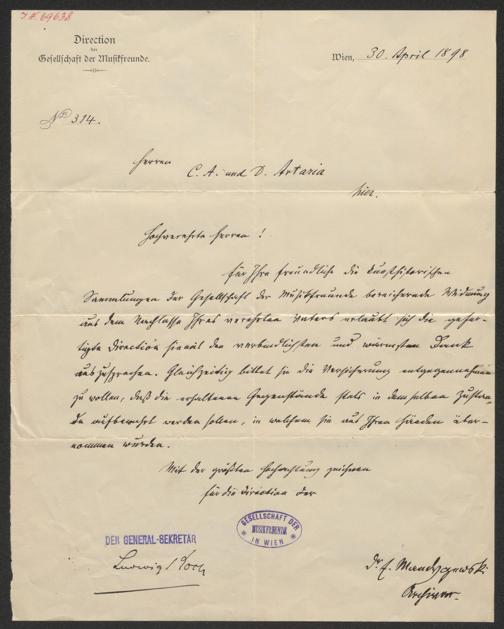 I.N. 69638
Direction
der
Gesellschaft der Musikfreunde.
Wien, 30. April 1898
No 314.
Herren
C. A. und D. Artaria
hier.
Hochverehrte Herren!
Für Ihre freundliche die kunsthistorischen
Sammlungen der Gesellschaft der Musikfreunde bereichernde Widmung
aus dem Nachlasse Ihres verehrten Vaters erlaubt sich die gefer-
tigte Direction hiemit den verbindlichsten und wärmsten Dank
auszusprechen. Gleichzeitig bittet sie die Versicherung entgegennehmen
zu wollen, daß die erhaltenen Gegenstände stets in demselben Zustan-
de aufbewahrt werden sollen, in welchem sie aus Ihren Händen über-
nommen wurden.
Mit der größten Hochachtung zeichnen
für die Direction der
GESELLSCHAFT DER
MUSIKFREUNDE
IN WIEN
DER GENERAL-SEKRETÄR
Ludwig Koch
Dr. E. Mandyczewski
Archivar.